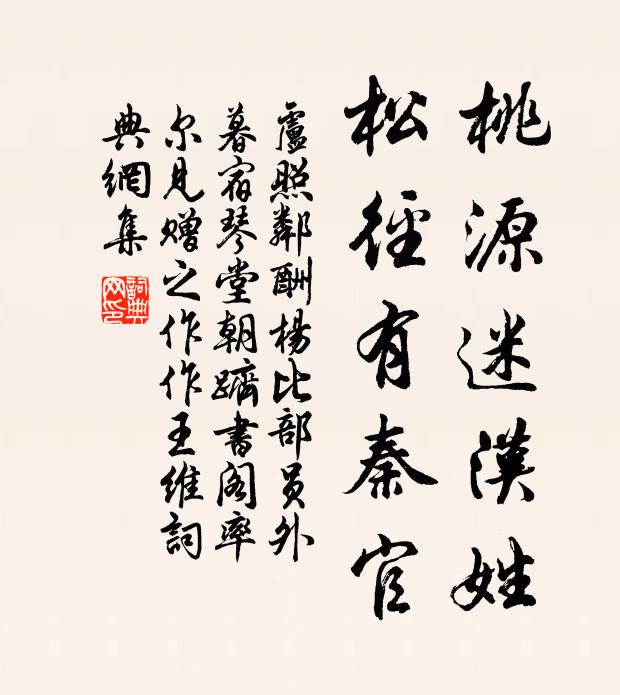 桃源迷漢姓
松徑有秦官
盧照鄰酬楊比部員外
暮宿琴堂朝躋書閣率
尔見贈之作作王維詞
典網集
詞典
网印